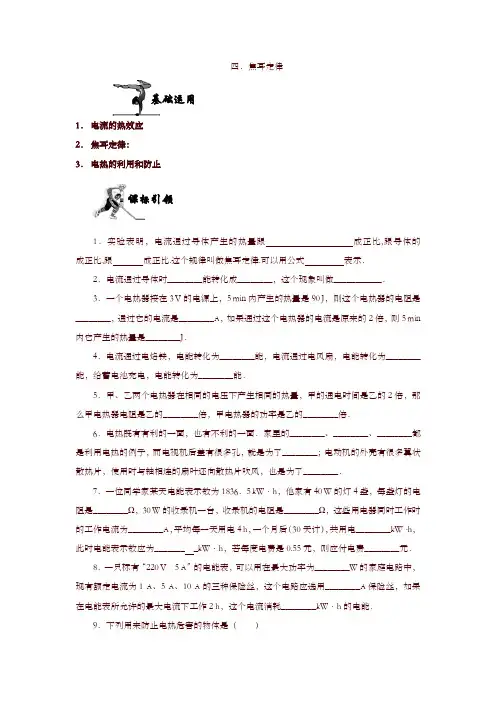 四．焦耳定律
基础运用
1．电流的热效应
2．焦耳定律：
3．电热的利用和防止
课标引领
1．实验表明，电流通过导体产生的热量跟 成正比,跟导体的
成正比,跟 成正比.这个规律叫做焦耳定律.可以用公式 表示.
2．电流通过导体时________能转化成________，这个现象叫做___________．
3．一个电热器接在3 V的电源上，5 min内产生的热量是90 J，则这个电热器的电阻是
________，通过它的电流是________A，如果通过这个电热器的电流是原来的2倍，则5 min
内它产生的热量是________J．
4．电流通过电烙铁，电能转化为________能，电流通过电风扇，电能转化为________
能，给蓄电池充电，电能转化为________能．
5．甲、乙两个电热器在相同的电压下产生相同的热量，甲的通电时间是乙的2倍，那
么甲电热器电阻是乙的________倍，甲电热器的功率是乙的________倍．
6．电热既有有利的一面，也有不利的一面．家里的________、________、________都
是利用电热的例子，而电视机后盖有很多孔，就是为了________；电动机的外壳有很多翼状
散热片，使用时与轴相连的扇叶还向散热片吹风，也是为了________．
7．一位同学家某天电能表示数为1836．5 kW·h，他家有40 W的灯4盏，每盏灯的电
阻是________Ω，30 W的收录机一台，收录机的电阻是________Ω，这些用电器同时工作时
的工作电流为________A,平均每一天用电4 h，一个月后(30天计)，共用电________kW·h，
此时电能表示数应为_______ _kW·h，若每度电费是0.55元，则应付电费________元．
8．一只标有“220 V 5 A”的电能表，可以用在最大功率为________W的家庭电路中，
现有额定电流为1 A、5 A、10 A的三种保险丝，这个电路应选用________A保险丝，如果
在电能表所允许的最大电流下工作2 h，这个电流消耗________kW·h的电能．
9．下列用来防止电热危害的物体是（ ）